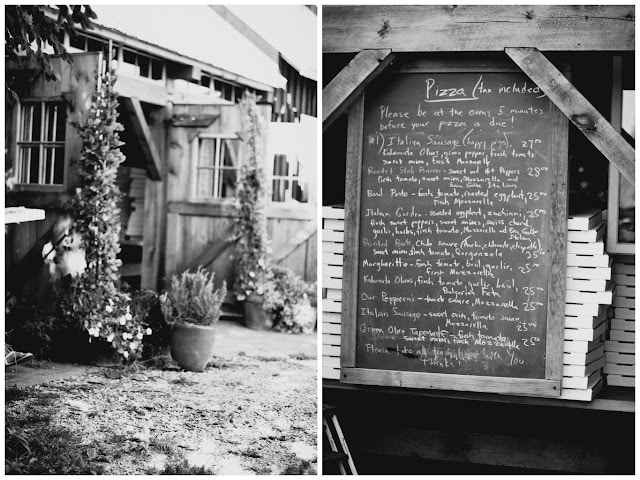 Pizza (tax included)
Please be at the ovens 5 minutes
before your pizza is due!
#1) Italian Sausage (happy pigs), 27.00
Kalamata Olives, green peppers, fresh tomato,
sweet onion, fresh Mozzarella
Roasted Slab Bacon - Sweet and Hot Peppers 28.00
fresh tomato, sweet onion, Mozzarella and
Italian
Basil Pesto - fresh tomato, roasted eggplant, 25.00
fresh Mozzarella
Italian Garden - roasted eggplant, zucchini, 25.00
fresh sweet peppers, sweet onion, swiss chard
garlic, herbs, fresh tomato, Mozzarella and
Italian
Roasted Beets, sauce
sweet onion, fresh tomato, Gorgonzola 25.00
Margherita - fresh tomato, basil, garlic, 25.00
fresh Mozzarella
Kalamata Olives, fresh tomato, garlic, basil, 25.00
Bulgarian Feta
Our Pepperoni - tomato sauce, Mozzarella 25.00
Italian Sausage - sweet onion, tomato sauce
Mozzarella 25.00
Green Olive Tapenade - fresh tomato,
sweet onion, fresh Mozzarella 25.00
Please take all trash with You
thanks!